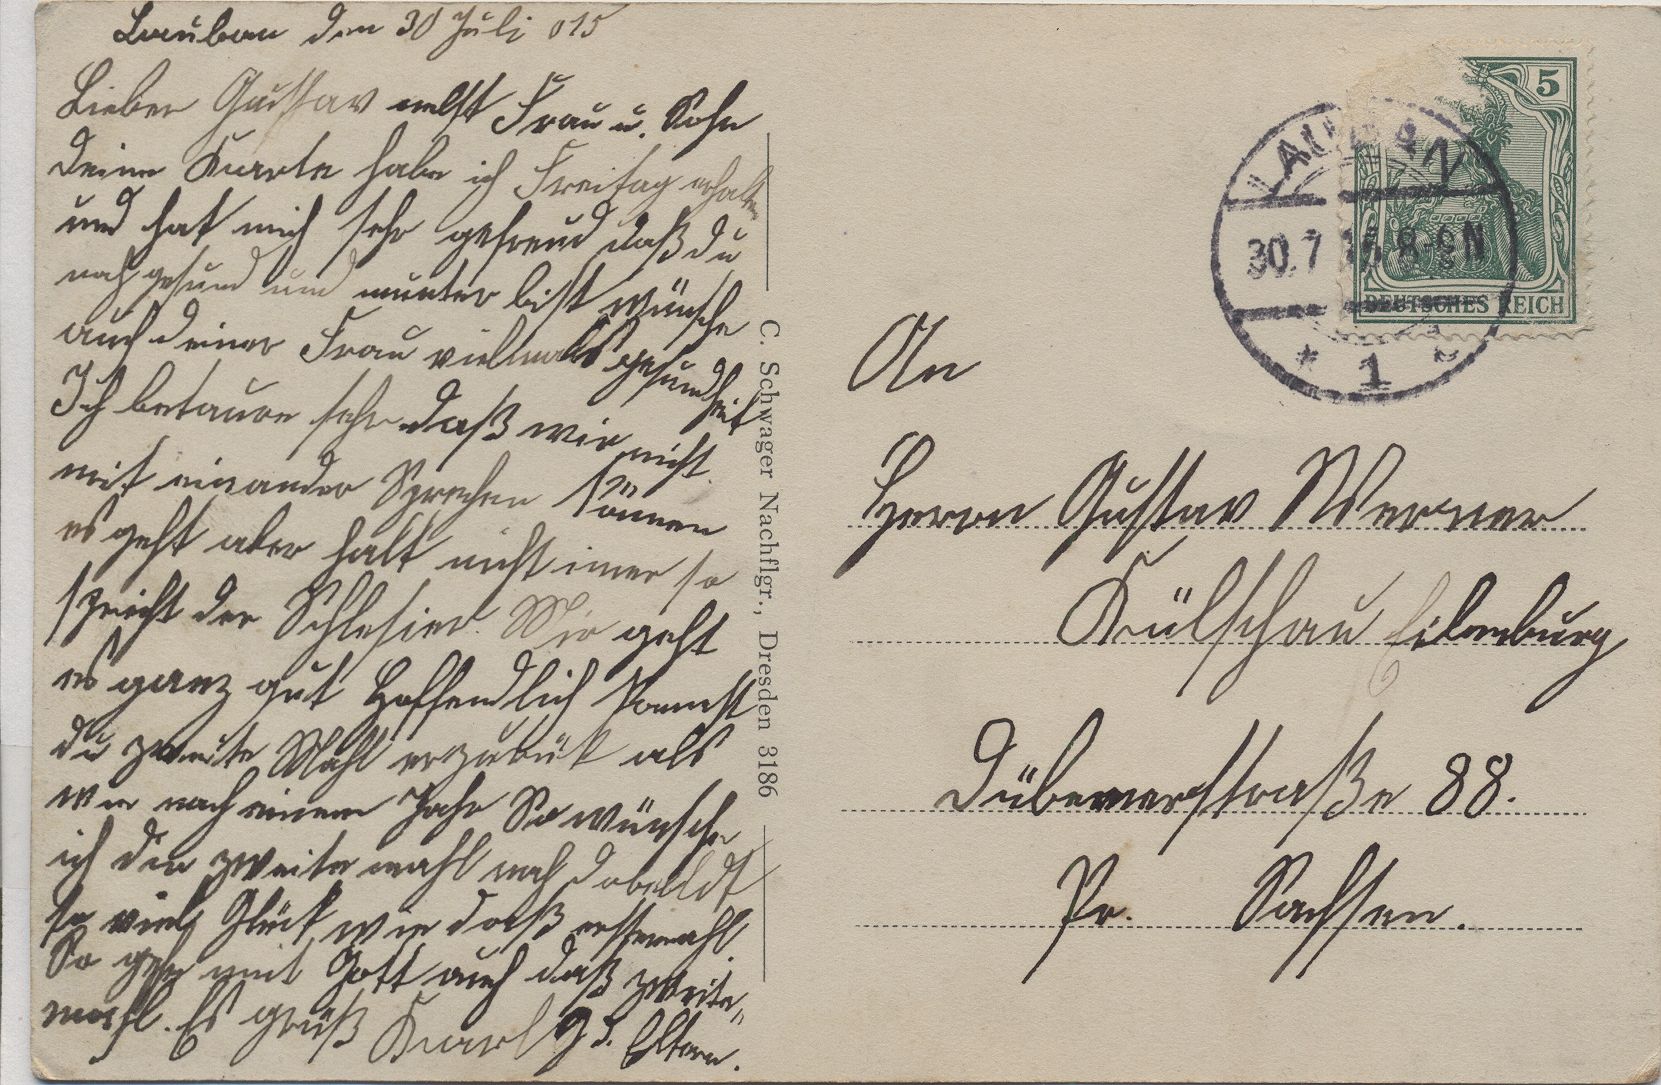 Lauban den 30 Juli 015
Lieber Gustav nebst Frau u. Sohn
Deine Karte habe ich Freitag erhalten
und hat mich sehr gefreud daß du
noch gesund und munter bist wünsche
auch deiner Frau vielmals gesundheit
Ich betaure sehr daß wir nicht
mit einander Sprechen können
es geht aber halt nicht imer so
spricht der Schlesier. Mir geht
es ganz gut Hoffendlich kommst
du zweite Mahl zurück als
wie nach einem Jahr So wünsche
ich dir zweite mahl noch
so viel Glück wie daß erstemahl.
So geh mit Gott auch daß zweite„
mahl. Es grüß Karl Eltern.
C. Schwager Nachflgr., Dresden 3186
DEUTSCHES REICH
5
LAUBAN
30.7 15 8-9N
* 1 *
An
Herrn Gustav Werner
Külschau Eilenburg
Dübenerstraße 88.
Pr. Sachsen.